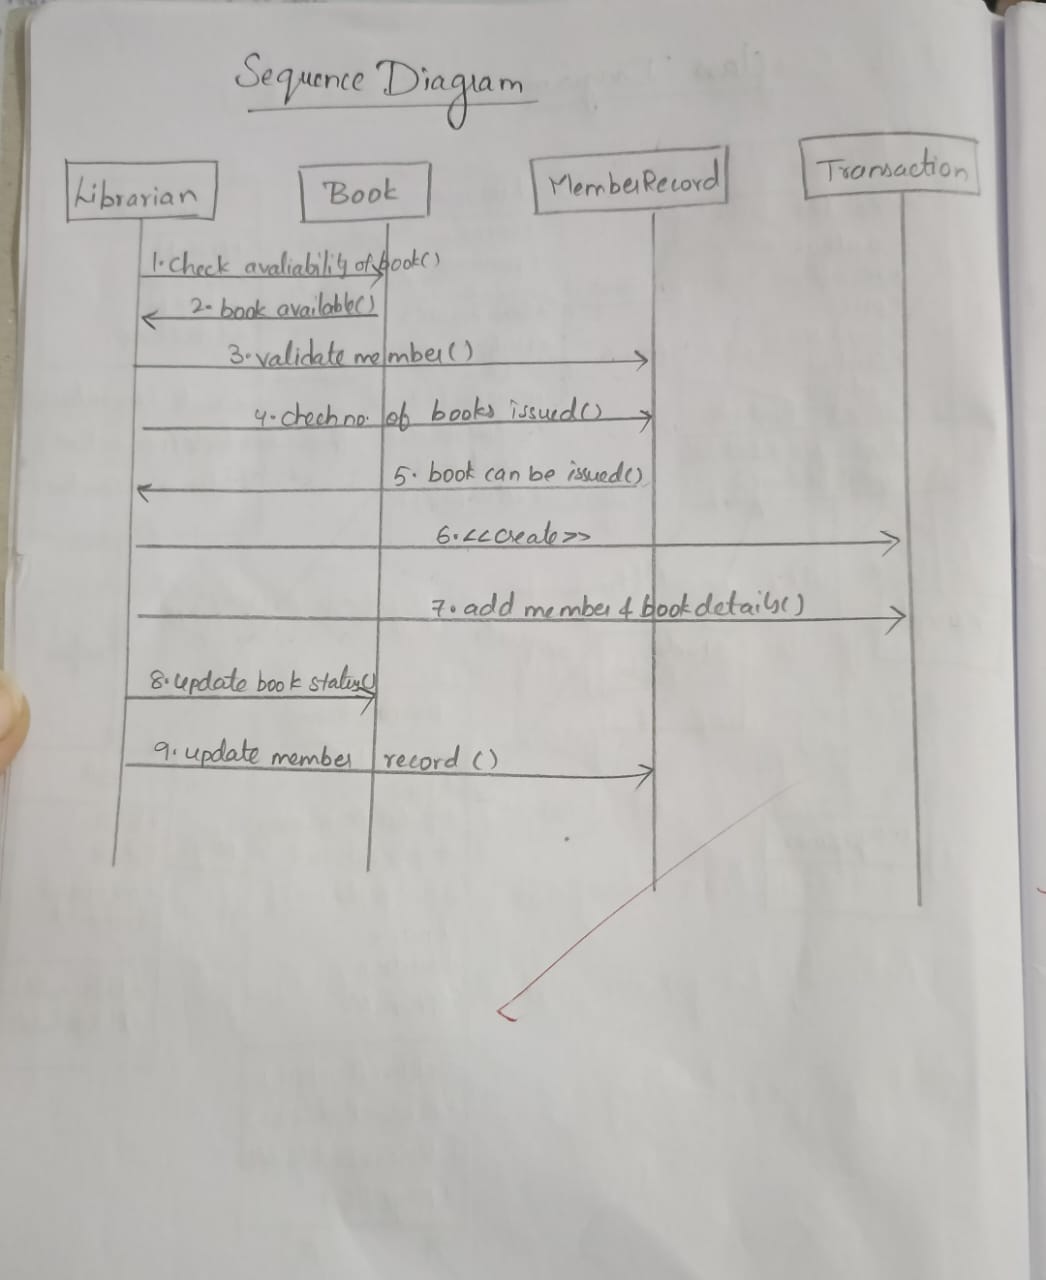 Sequence Diagram
Librarian
Book
MemberRecord
Transaction
1. check avaliability of book()
2. book available()
3. validate member()
4. chech no. of books issued()
5. book can be issued()
6. <<create>>
7. add member & book details()
8. update book status()
9. update member record ()